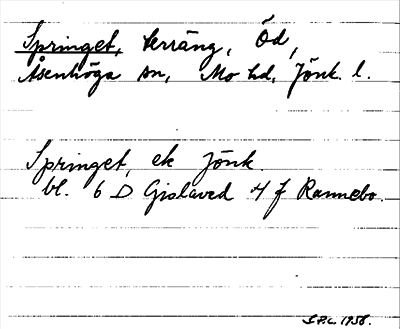 Springet, terräng, Öd,
Åsenhöga sn, Mo hd, Jönk. l.
Springet, ek Jönk.
bl. 6 D Gislaved 4 f Rannebo.
1958.